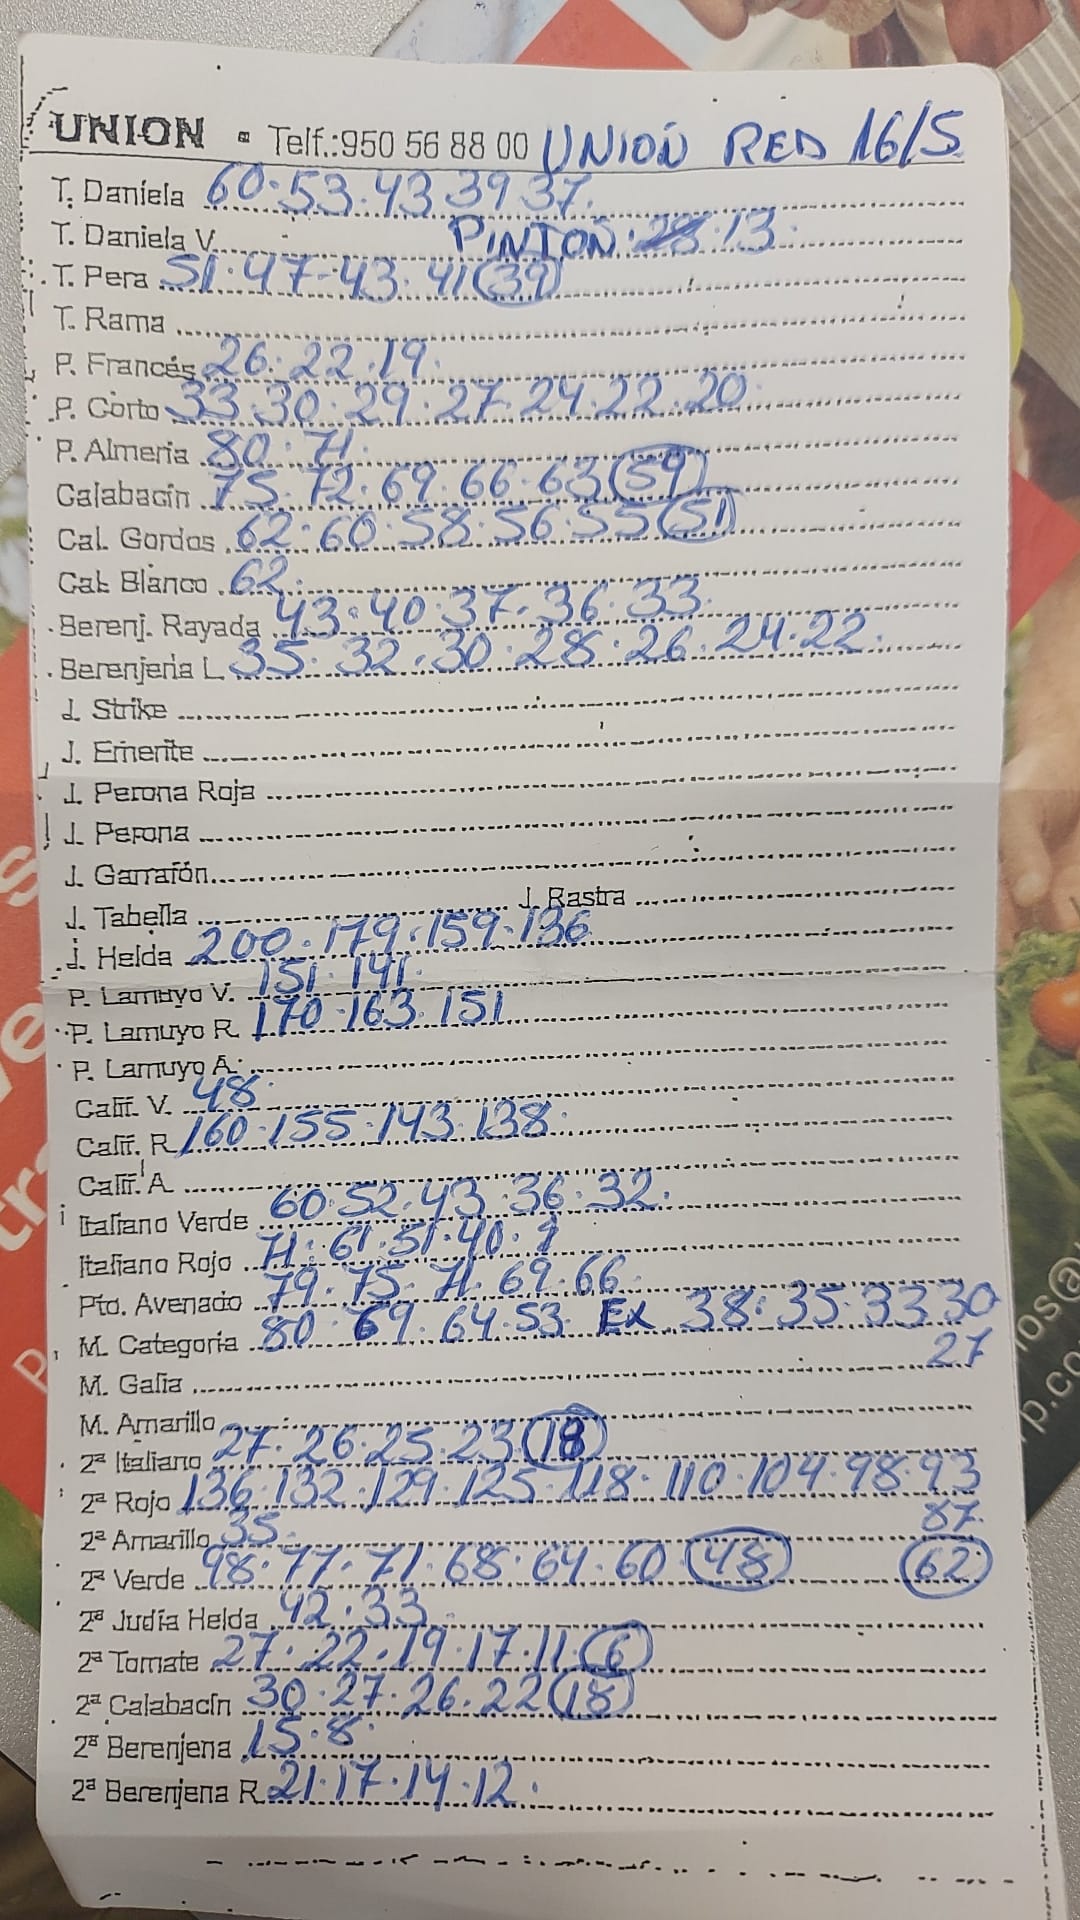 UNION - Telf.:950 56 88 00 UNION RED 16/5
T. Daniela 60.53.43 39 37.
T. Daniela V. PINTON. 13.
T. Pera 51.47-43.41 39
T. Rama
P. Francés 26.22.19.
P. Corto 33.30.29.27.24.22.20.
P. Almeria 80.71.
Calabacín 75.72.69.66.63 59
Cal. Gordos 62.60.58.56.55 51
Cal. Blanco 62.
Berenj. Rayada 43.40.37.36.33.
Berenjena L. 35.32.30.28.26.24.22.
J. Strike
J. Emerite
J. Perona Roja
J. Perona
J. Garrafón
J. Tabella J. Rastra
J. Helda 200.179.159.136
P. Lamuyo V. 151.141.
P. Lamuyo R. 170.163.151
P. Lamuyo A.
Calif. V. 48.
Calif. R. 160.155.143.138.
Calif. A
Italiano Verde 60.52.43.36.32.
Italiano Rojo 71.61.51.40.
Pto. Avenado 79.75.71.69.66.
M. Categoria 80.69.64.53. Ex 38.35.33 30
27
M. Galia
M. Amarillo
2ª Italiano 27.26.25.23 18
2ª Rojo 136.132.129.125.118.110.104.98.93
87.
2ª Amarillo 35.
2ª Verde 98.77.71.68.64.60.48 62
2ª Judía Helda 42.33.
2ª Tomate 27.22.19.17.11.6
2ª Calabacín 30.27.26.22 18
2ª Berenjena 15.8.
2ª Berenjena R. 21.17.14.12.